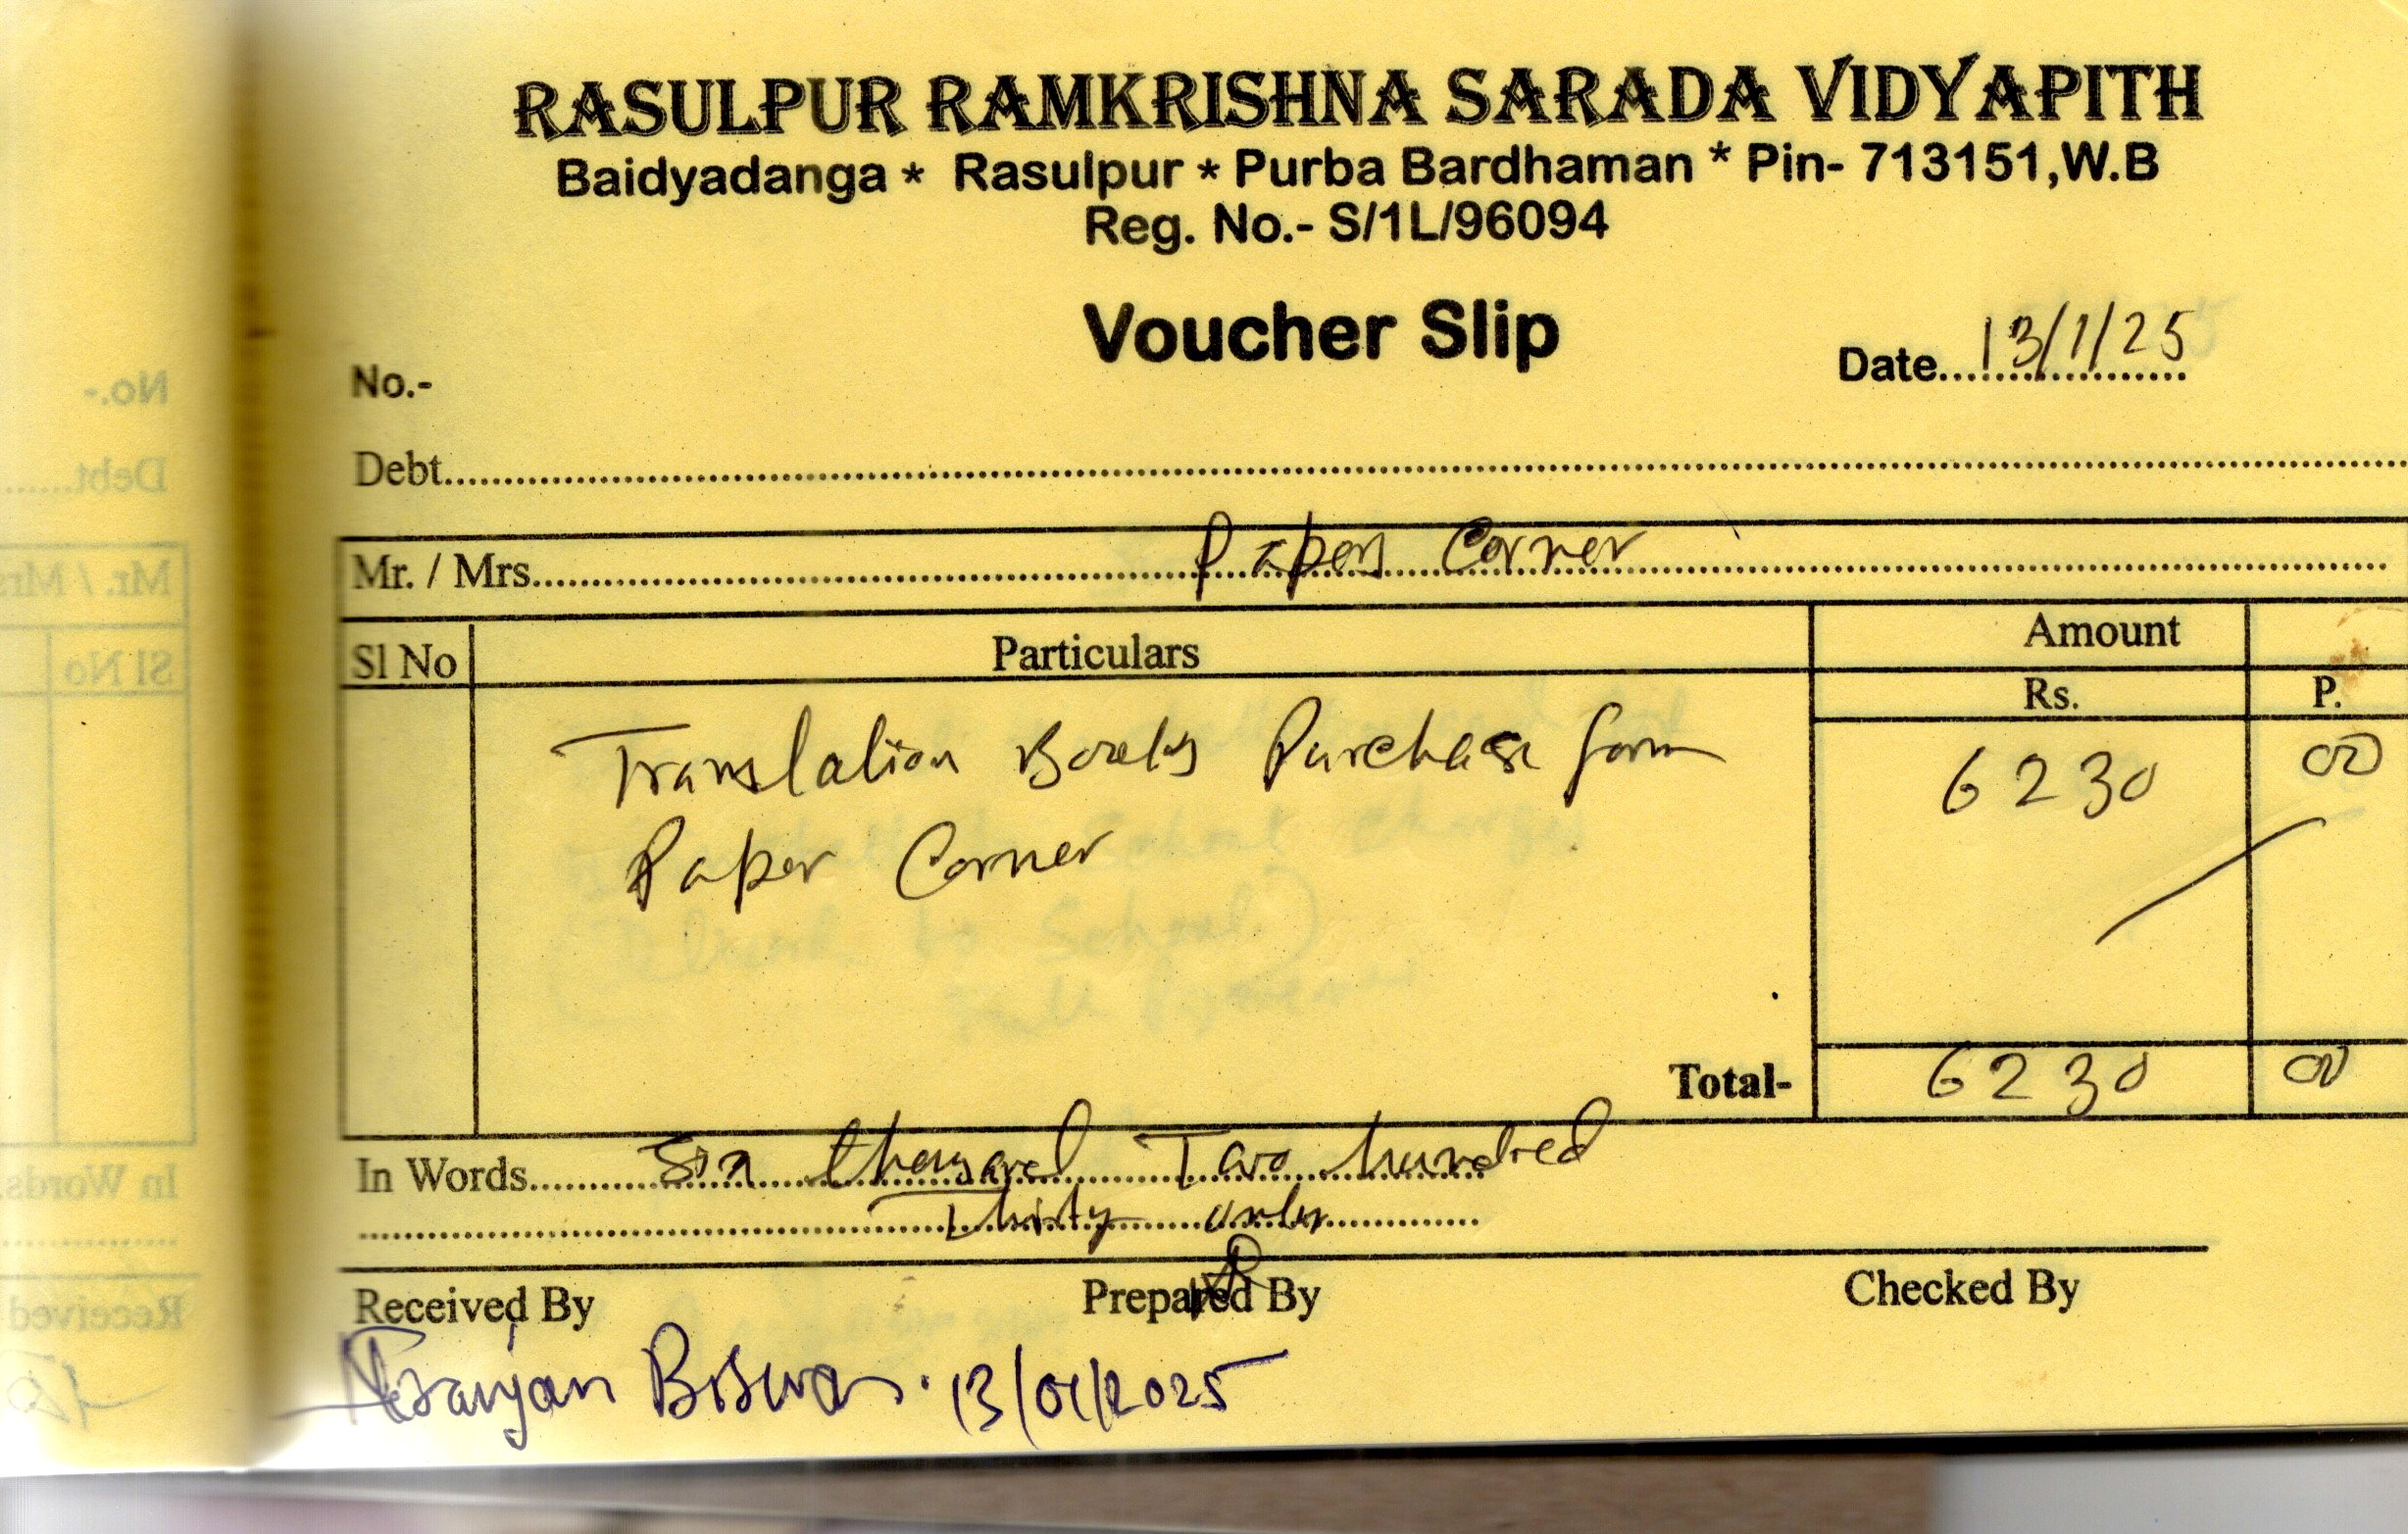 RASULPUR RAMKRISHNA SARADA VIDYAPITH
Baidyadanga * Rasulpur * Purba Bardhaman * Pin- 713151,W.B
Reg. No.- S/1L/96094
Voucher Slip
No.-
Date....13/1/25
Debt
Mr. / Mrs. Paper Corner
Sl No Particulars Amount
Rs. P.
Translation Books Purchase form 6230 00
Paper Corner
Total- 6230 00
In Words Six thousand Two hundred
Thirty only
Received By Prepared By Checked By
Biswas. 13/01/2025